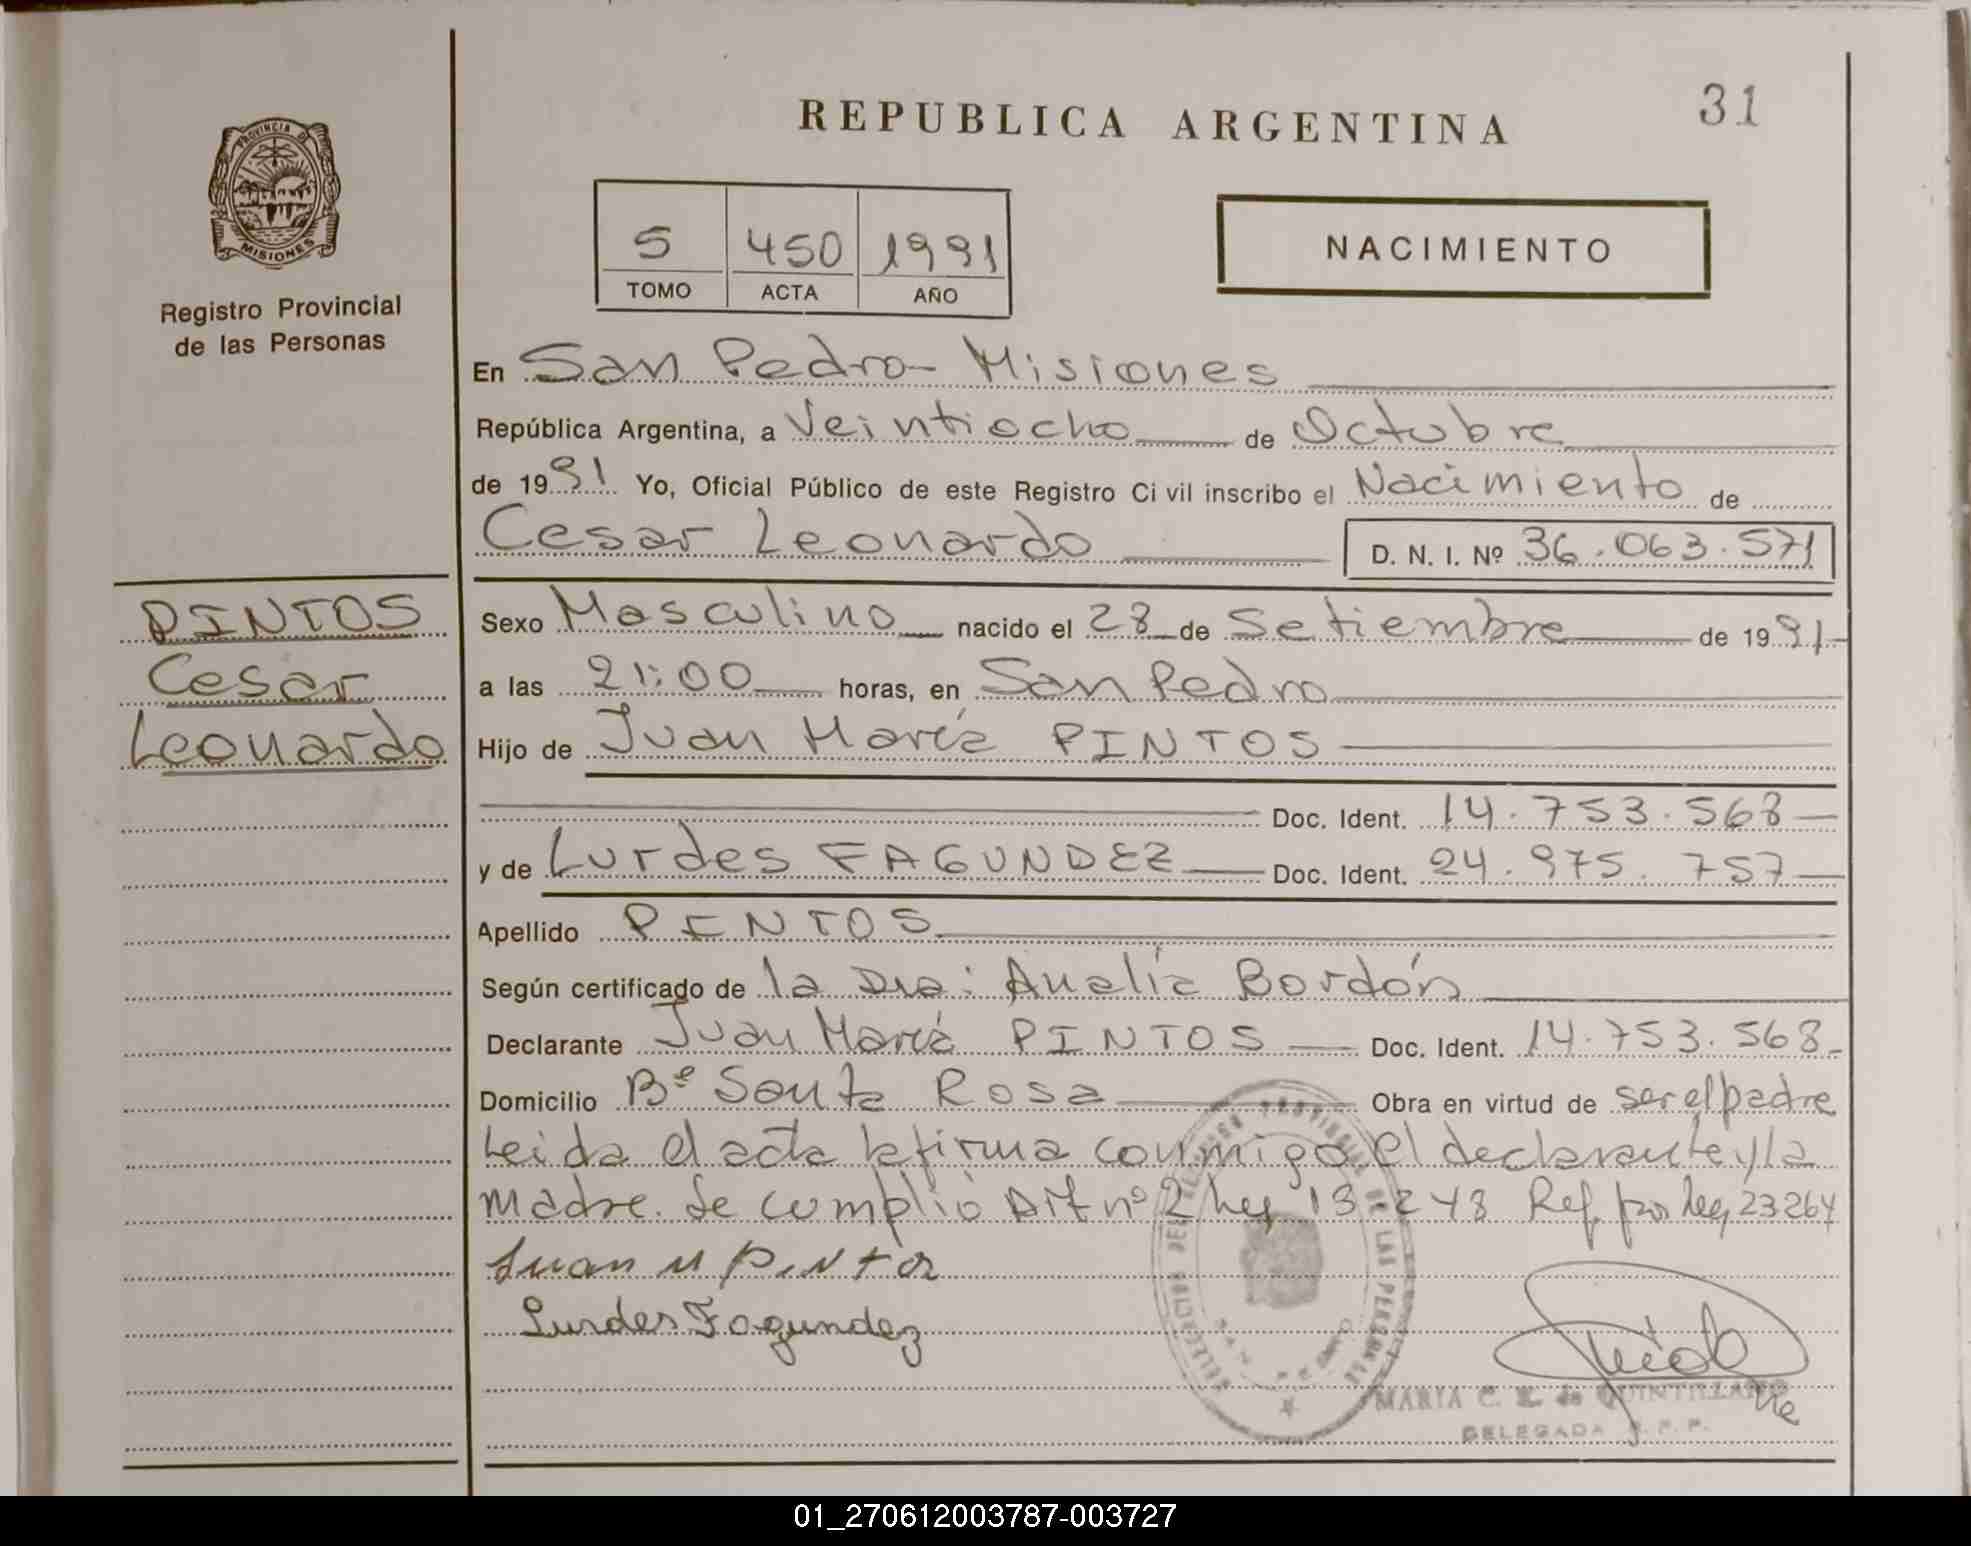 31
REPUBLICA ARGENTINA
PROVINCIA DE
MISIONES
Registro Provincial
de las Personas
5 450 1991
TOMO ACTA AÑO
NACIMIENTO
En San Pedro - Misiones
República Argentina, a Veintiocho de Octubre
de 1991 Yo, Oficial Público de este Registro Ci vil inscribo el Nacimiento de
Cesar Leonardo D. N. I. Nº 36.063.571
PINTOS
Cesar
Leonardo
Sexo Masculino nacido el 28 de Setiembre de 1991
a las 21:00 horas, en San Pedro
Hijo de Juan María PINTOS
Doc. Ident. 14.753.568
y de Lurdes FAGUNDEZ Doc. Ident. 24.975.757
Apellido PINTOS
Según certificado de la Dra: Analía Bordón
Declarante Juan María PINTOS Doc. Ident. 14.753.568
Domicilio Bº Santa Rosa Obra en virtud de ser el padre
Leida el acta la firma conmigo el declarante y la
madre. Se cumplió Art nº 2 Ley 18.248 Ref. por ley 23264
Juan M Pintos
Lurdes Fagundez
MARIA C. de QUINTILLANO
DELEGADA R.P.P.
01_270612003787-003727